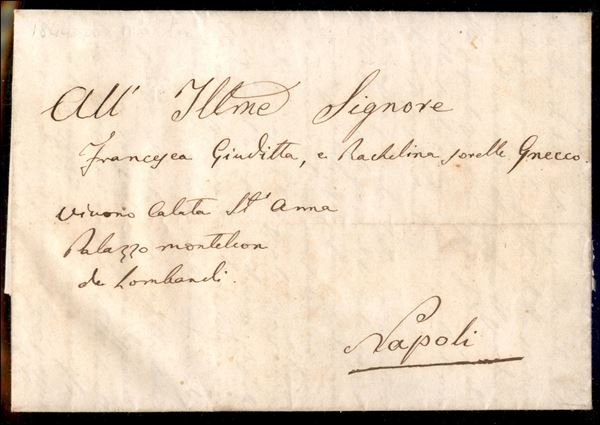 All' Illme Signore
Francesca Giuditta, e Rachelina sorelle Gnecco.
vivono Calata St' Anna
Palazzo monteleon
de Lombardi.
Napoli